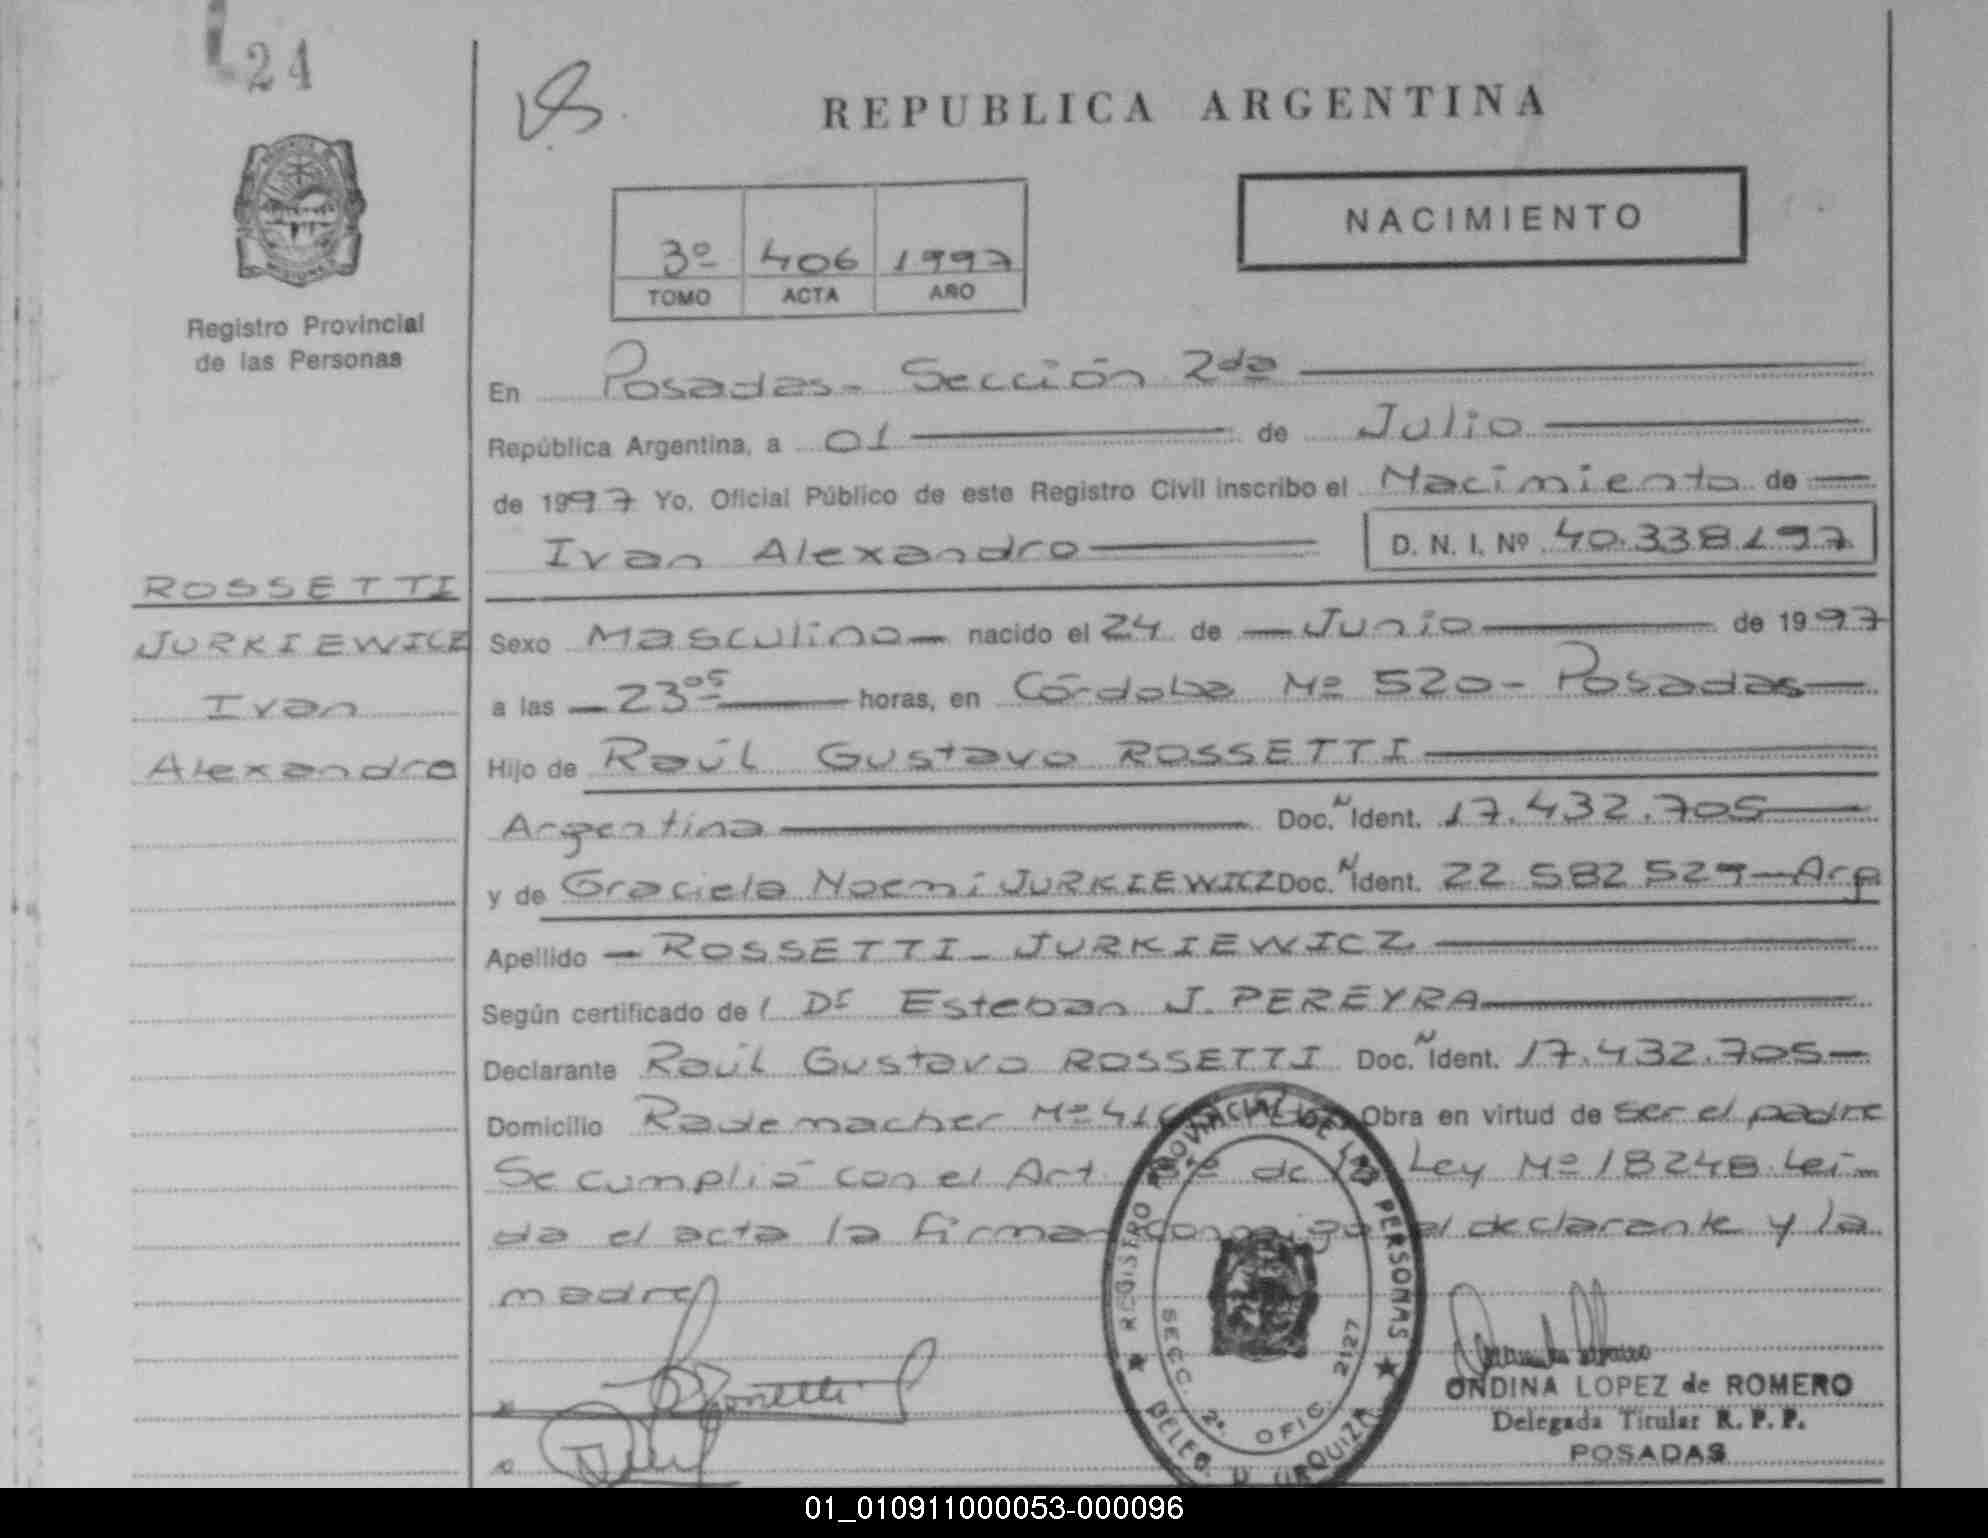 24
REPUBLICA ARGENTINA
NACIMIENTO
3º 406 1997
TOMO ACTA AÑO
Registro Provincial
de las Personas
En Posadas - Sección 2da
República Argentina, a 01 de Julio
de 1997 Yo, Oficial Público de este Registro Civil inscribo el Nacimiento de
Ivan Alexandro D. N. I. Nº 40.338.197
ROSSETTI
JURKIEWICZ
Ivan
Alexandro
Sexo Masculino nacido el 24 de Junio de 1997
a las 23 05 horas, en Córdoba Nº 520 - Posadas
Hijo de Raúl Gustavo ROSSETTI
Argentina Doc. N Ident. 17.432.705
y de Graciela Noemi JURKIEWICZ Doc. N Ident. 22 582 529 - Arg
Apellido - ROSSETTI - JURKIEWICZ
Según certificado del Dr Esteban J. PEREYRA
Declarante Raúl Gustavo ROSSETTI Doc. N Ident. 17.432.705
Domicilio Rademacher Nº Obra en virtud de ser el padre
Se cumplió con el Art. de la Ley Nº 18248. Leí-
da el acta la firman conmigo el declarante y la
madre
REGISTRO PROVINCIAL DE LAS PERSONAS
SECC. 2ª. OFIC. 2127
DELEG. U. URQUIZA
ONDINA LOPEZ de ROMERO
Delegada Titular R. P. P.
POSADAS
01_010911000053-000096